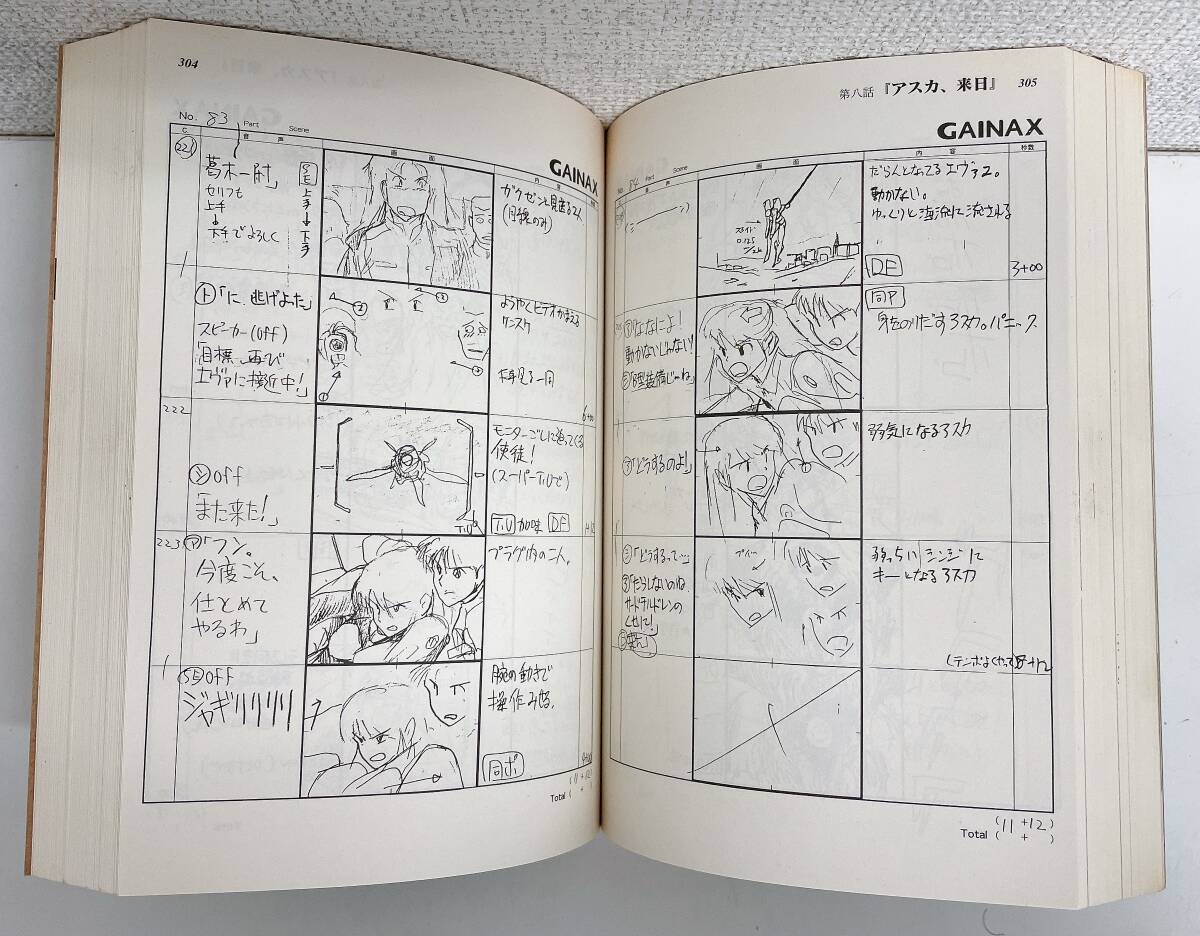 304
No. 83
Part
Scene
GAINAX
C.
音声
画面
内容
221
葛木一尉」
セリフも
上手
↓
下手でよろしく
SE
上手
↓
下手
ト「に、逃げよった」
スピーカー(OFF)
「目標、再び
エヴァに接近中!」
ようやくビデオかまえる
ケンスケ
下手見る一同
6+00
222
シ OFF
「また来た!」
モニターごしに迫ってくる
使徒!
(スーパーT.Uで)
T.U 加味 DF
T.U
223
ア「フン。
今度こそ、
仕とめて
やるわ」
プラグ内の二人。
SE OFF
ジャギリリリリ
腕の動きで
操作みせる。
同ポ
Total
(11+12)
( + )
第八話『アスカ、来日』
305
GAINAX
No. 84
Part
Scene
音声
画面
内容
秒数
スライド
0.125
だらんとなってるエヴァ2。
動かない。
ゆっくりと海流に流される
DF
3+00
ア「ななによ!
動かないじゃない!
シ「B型装備じゃね」
同P
身をのりだすアスカ。パニック
ア「どうするのよ!」
弱気になるアスカ
シ「どうするって…」
ア「だらしないのね、
サードチルドレンの
くせに!」
プイ〜
弱っちいシンジに
キーとなるアスカ
(テンポよくやって
8+12
Total
(11+12)
( + )